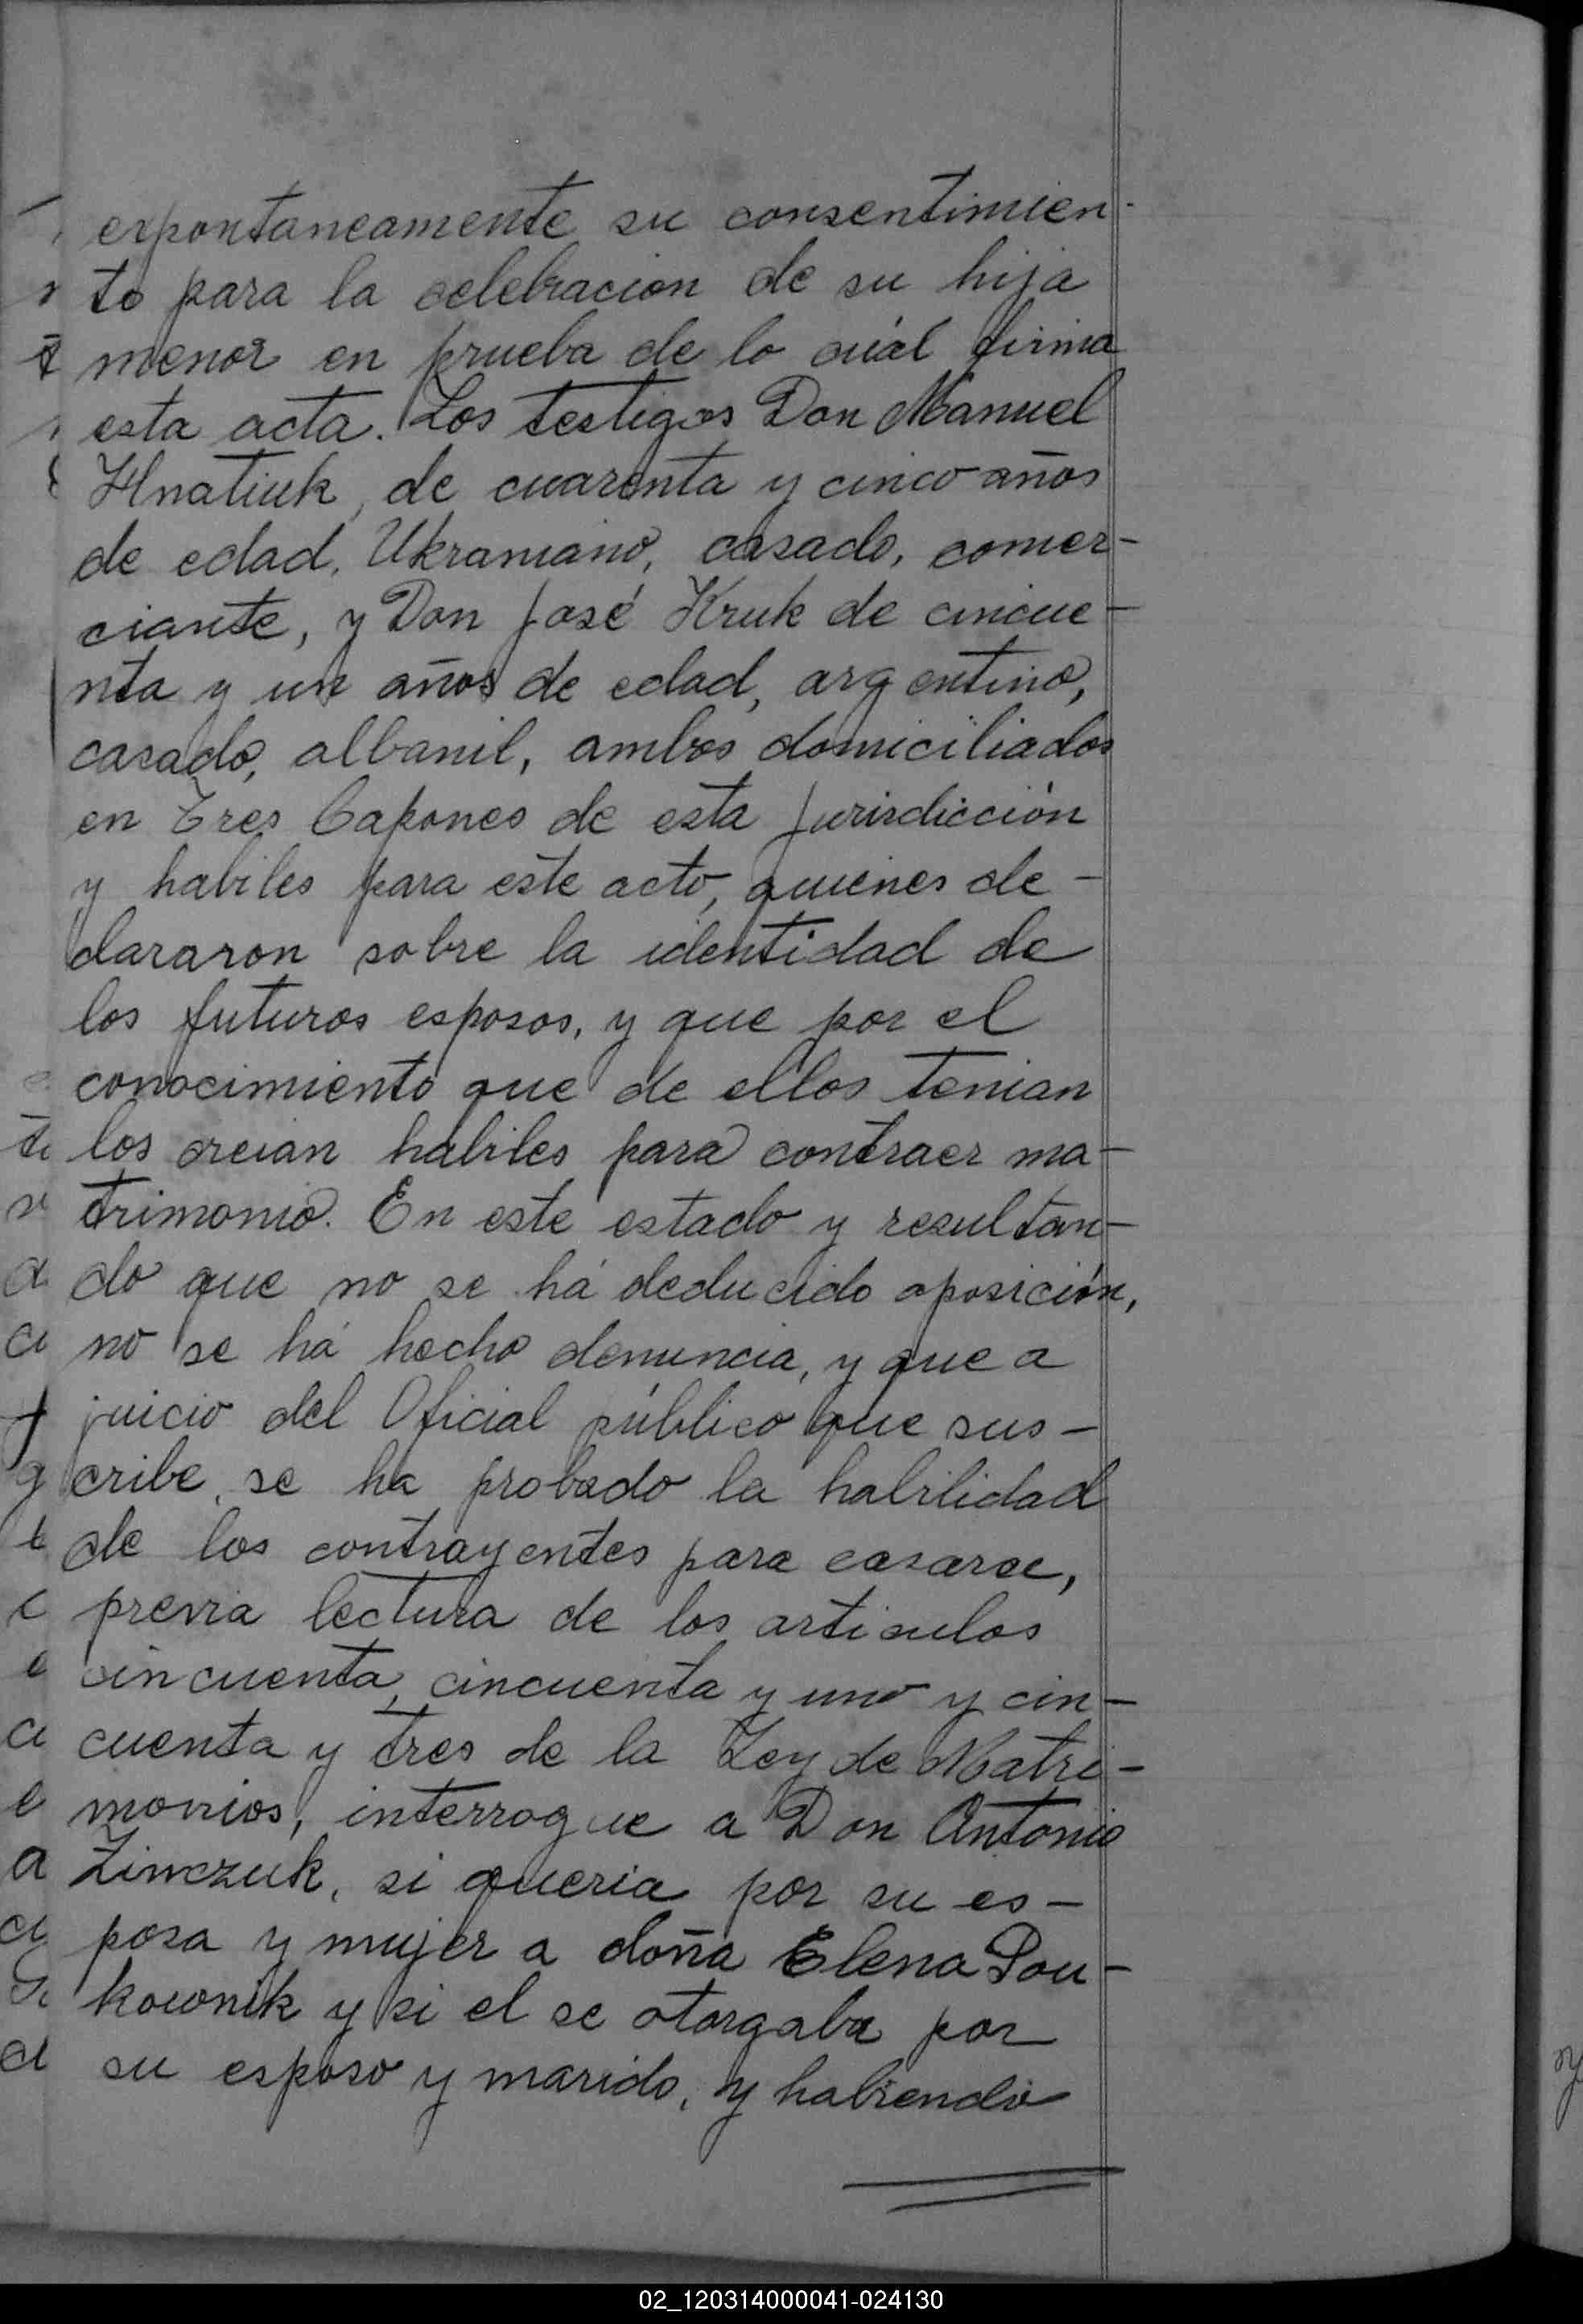 expontaneamente su consentimien-
to para la celebracion de su hija
menor en prueba de lo cuál firma
esta acta. Los testigos Don Manuel
Hnatiuk, de cuarenta y cinco años
de edad, Ukraniano, casado, comer-
ciante, y Don José Kruk de cincue-
nta y un años de edad, argentino,
casado, albanil, ambos domiciliados
en Tres Capones de esta jurisdicción
y habiles para este acto, quienes de-
clararon sobre la identidad de
los futuros esposos, y que por el
conocimiento que de ellos tenian
los creian habiles para contraer ma-
trimonio. En este estado y resultan-
do que no se há deducido oposición,
no se há hecho denuncia, y que a
juicio del Oficial público que sus-
cribe, se ha probado la habilidad
de los contrayentes para casarse,
previa lectura de los articulos
cincuenta, cincuenta y uno y cin-
cuenta y tres de la Ley de Matri-
monios, interrogue a Don Antonio
Zinczuk, si queria por su es-
posa y mujer a doña Elena Pou-
kownik y si el se otorgaba por
su esposo y marido, y habiendo
02_120314000041-024130